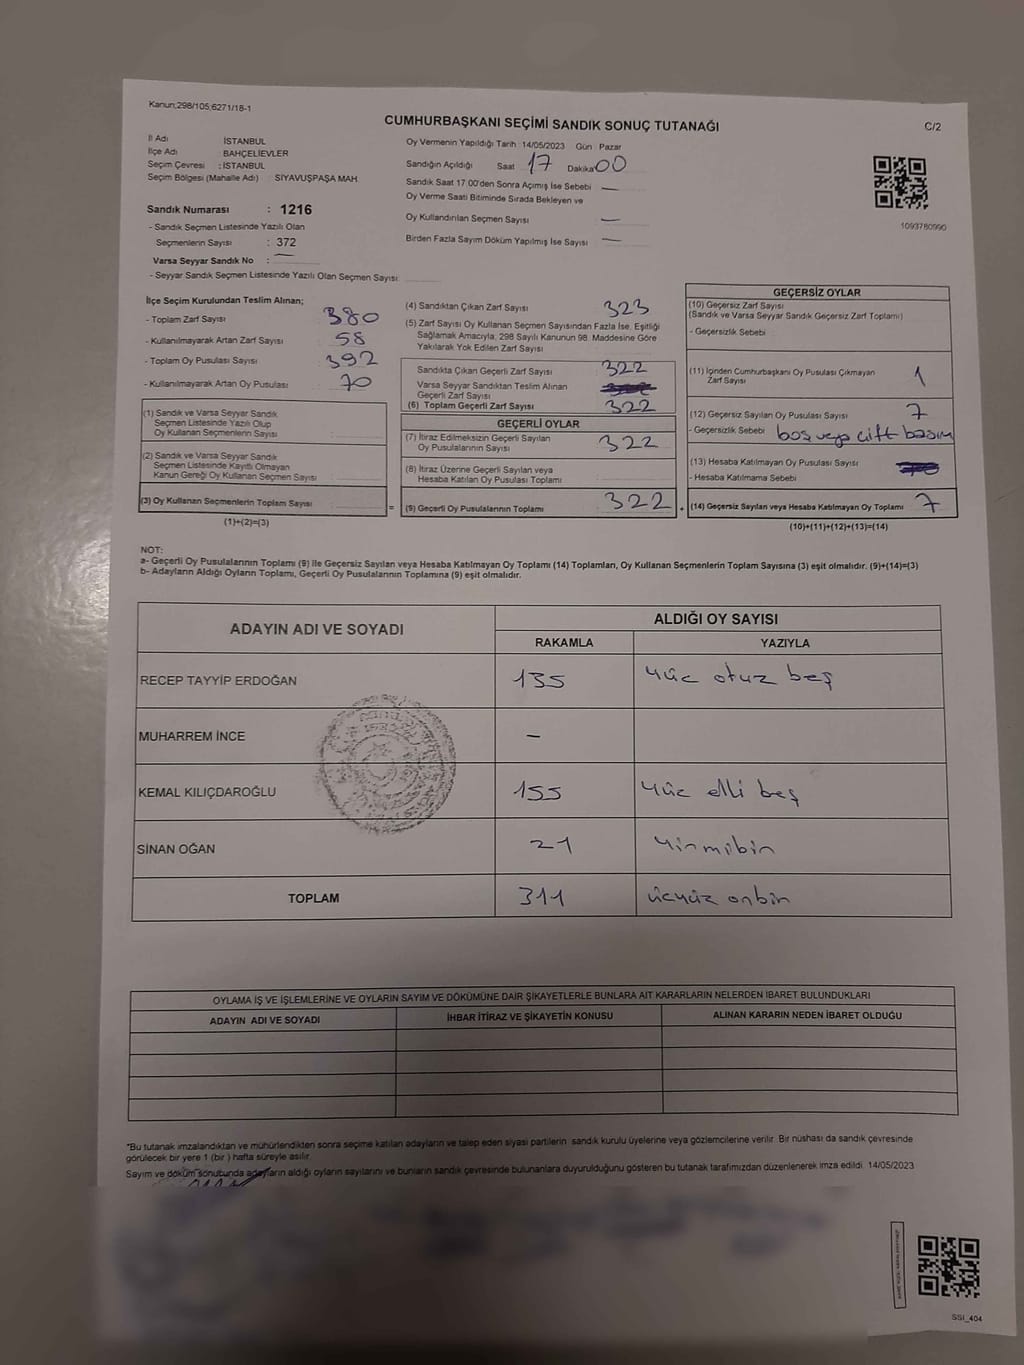 Kanun;298/105;6271/18-1
CUMHURBAŞKANI SEÇİMİ SANDIK SONUÇ TUTANAĞI
C/2
İl Adı İSTANBUL
İlçe Adı BAHÇELİEVLER
Seçim Çevresi : İSTANBUL
Seçim Bölgesi (Mahalle Adı) : SİYAVUŞPAŞA MAH.
Sandık Numarası : 1216
- Sandık Seçmen Listesinde Yazılı Olan
Seçmenlerin Sayısı : 372
Varsa Seyyar Sandık No : —
- Seyyar Sandık Seçmen Listesinde Yazılı Olan Seçmen Sayısı
Oy Vermenin Yapıldığı Tarih :14/05/2023 Gün : Pazar
Sandığın Açıldığı Saat 17 Dakika 00
Sandık Saat 17:00'den Sonra Açımış İse Sebebi —
Oy Verme Saati Bitiminde Sırada Bekleyen ve
Oy Kullandırılan Seçmen Sayısı —
Birden Fazla Sayım Döküm Yapılmış İse Sayısı —
1093780990
İlçe Seçim Kurulundan Teslim Alınan;
- Toplam Zarf Sayısı : 380
- Kullanılmayarak Artan Zarf Sayısı : 58
- Toplam Oy Pusulası Sayısı : 392
- Kullanılmayarak Artan Oy Pusulası : 70
(1) Sandık ve Varsa Seyyar Sandık
Seçmen Listesinde Yazılı Olup
Oy Kullanan Seçmenlerin Sayısı :
(2) Sandık ve Varsa Seyyar Sandık
Seçmen Listesinde Kayıtlı Olmayan
Kanun Gereği Oy Kullanan Seçmen Sayısı :
(3) Oy Kullanan Seçmenlerin Toplam Sayısı
(1)+(2)=(3)
=
(4) Sandıktan Çıkan Zarf Sayısı 323
(5) Zarf Sayısı Oy Kullanan Seçmen Sayısından Fazla İse, Eşitliği
Sağlamak Amacıyla, 298 Sayılı Kanunun 98. Maddesine Göre
Yakılarak Yok Edilen Zarf Sayısı
Sandıkta Çıkan Geçerli Zarf Sayısı 322
Varsa Seyyar Sandıktan Teslim Alınan
Geçerli Zarf Sayısı
(6) Toplam Geçerli Zarf Sayısı 322
GEÇERLİ OYLAR
(7) İtiraz Edilmeksizin Geçerli Sayılan
Oy Pusulalarının Sayısı 322
(8) İtiraz Üzerine Geçerli Sayılan veya
Hesaba Katılan Oy Pusulası Toplamı
(9) Geçerli Oy Pusulalarının Toplamı 322
+
GEÇERSİZ OYLAR
(10) Geçersiz Zarf Sayısı
(Sandık ve Varsa Seyyar Sandık Geçersiz Zarf Toplamı)
- Geçersizlik Sebebi
(11) İçinden Cumhurbaşkanı Oy Pusulası Çıkmayan
Zarf Sayısı 1
(12) Geçersiz Sayılan Oy Pusulası Sayısı 7
- Geçersizlik Sebebi boş veya çift basım
(13) Hesaba Katılmayan Oy Pusulası Sayısı
- Hesaba Katılmama Sebebi
(14) Geçersiz Sayılan veya Hesaba Katılmayan Oy Toplamı 7
(10)+(11)+(12)+(13)=(14)
NOT:
a- Geçerli Oy Pusulalarının Toplamı (9) ile Geçersiz Sayılan veya Hesaba Katılmayan Oy Toplamı (14) Toplamları, Oy Kullanan Seçmenlerin Toplam Sayısına (3) eşit olmalıdır. (9)+(14)=(3)
b- Adayların Aldığı Oyların Toplamı, Geçerli Oy Pusulalarının Toplamına (9) eşit olmalıdır.
ADAYIN ADI VE SOYADI ALDIĞI OY SAYISI
RAKAMLA YAZIYLA
RECEP TAYYİP ERDOĞAN 135 Yüz otuz beş
MUHARREM İNCE –
KEMAL KILIÇDAROĞLU 155 Yüz elli beş
SİNAN OĞAN 21 Yirmibir
TOPLAM 311 üçyüz onbir
OYLAMA İŞ VE İŞLEMLERİNE VE OYLARIN SAYIM VE DÖKÜMÜNE DAİR ŞİKAYETLERLE BUNLARA AİT KARARLARIN NELERDEN İBARET BULUNDUKLARI
ADAYIN ADI VE SOYADI İHBAR İTİRAZ VE ŞİKAYETİN KONUSU ALINAN KARARIN NEDEN İBARET OLDUĞU
*Bu tutanak imzalandıktan ve mühürlendikten sonra seçime katılan adayların ve talep eden siyasi partilerin sandık kurulu üyelerine veya gözlemcilerine verilir. Bir nüshası da sandık çevresinde
görülecek bir yere 1 (bir ) hafta süreyle asılır.
Sayım ve döküm sonubunda adayların aldığı oyların sayılarını ve bunların sandık çevresinde bulunanlara duyurulduğunu gösteren bu tutanak tarafımızdan düzenlenerek imza edildi. 14/05/2023
SSI_404